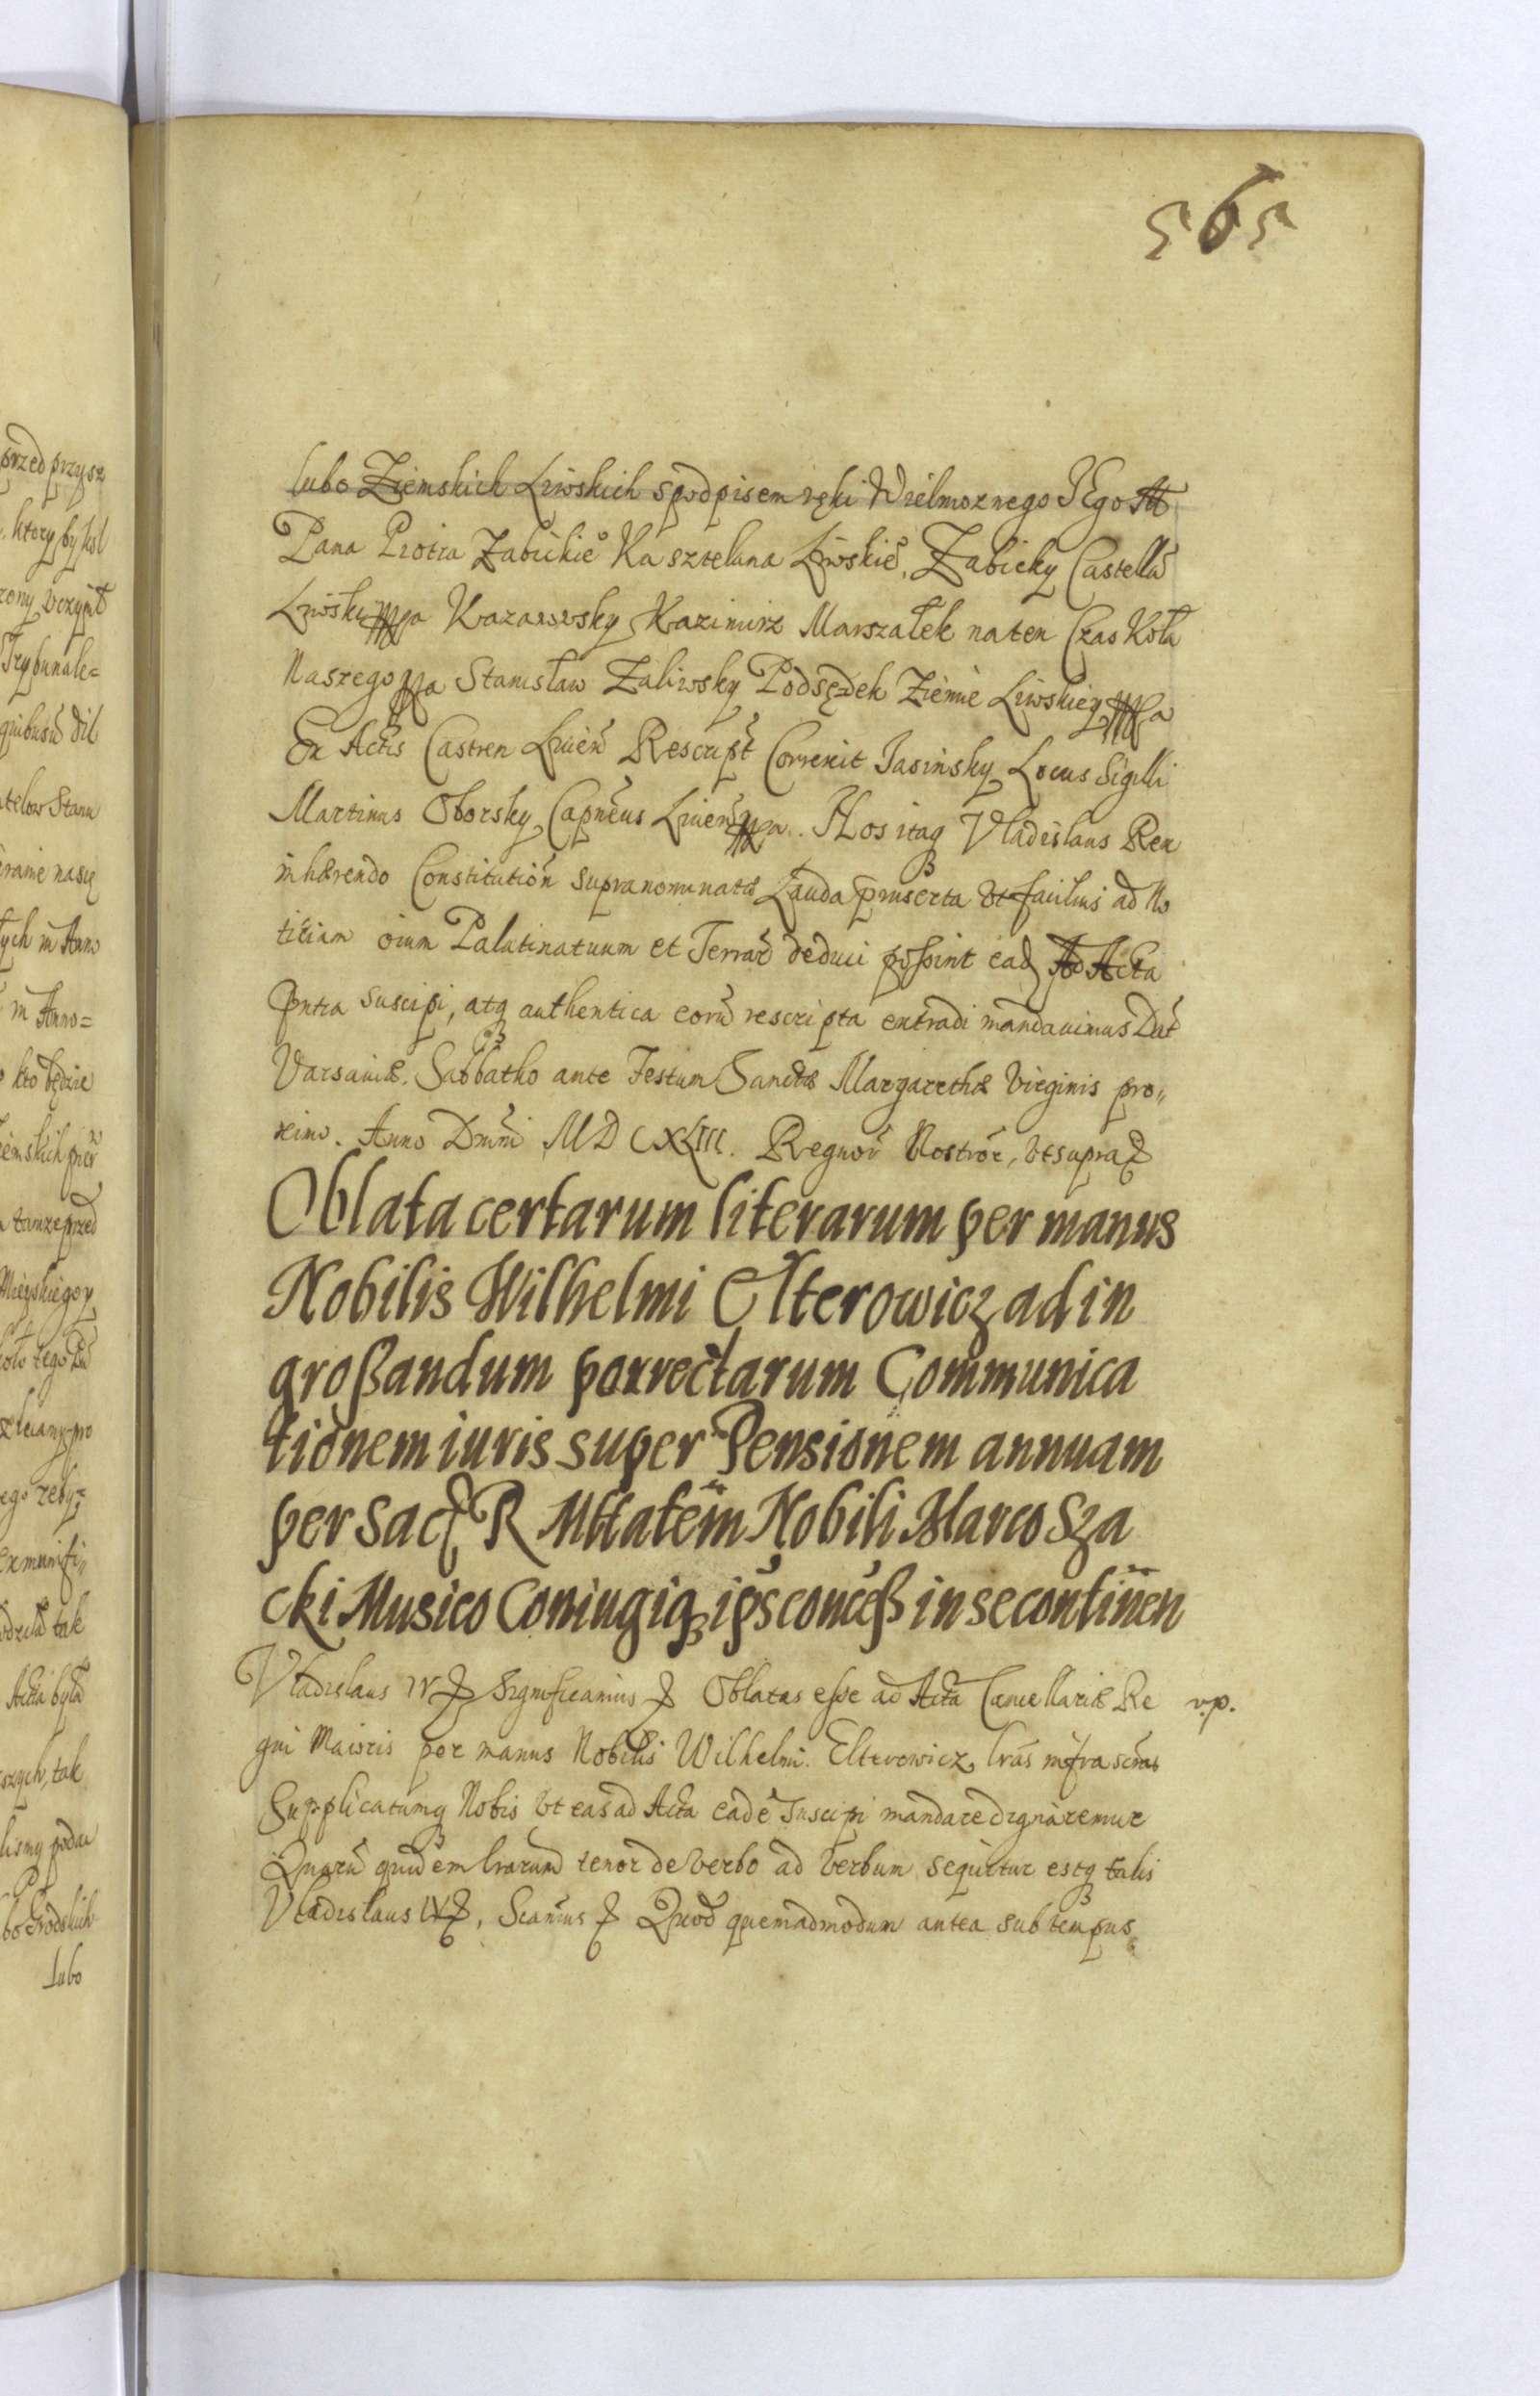 565
lubo Ziemskich Liwskich spodpisem ręki Wielmoznego JEgo M
Pana Piotra Zabickie Kasztelana Liwskie, Zabicky Castella
Liwski mpa Kazanowsky Kazimirz Marszałek naten Czas Koła
Naszego mpa Stanisław Zaliwsky Podsędek Ziemie Liwskiey mpa
Ex Actis Castren Liuen Rescript Correxit Jasinsky Locus Sigilli
Martinus Oborsky Capneus Liuen mpa. Nos itaq Vladislaus Rex
inhærendo Constitution supranominatæ Lauda pinserta vt facilius ad No
titiam oium Palatinatuum et Terrar deduci possint ead Ad Acta
pntia suscipi, atq authentica eoru rescripta extradi mandauimus Dat
Varsauiæ. Sabbatho ante Festum Sanctæ Margarethæ Virginis pro„
ximo. Anno Dnni MDCXLIII. Regnor Nostror, vt supra
Oblata certarum literarum per manus
Nobilis Wilhelmi Elterowicz ad in
großandum porrectarum Communica
tionem iuris super Pensionem annuam
per Sac R Mttatem Nobili Marco Sza
cki Musico Coniugiq ips conceß in se continen
Vladislaus IV Significamus Oblatas esse ad Acta Cancellariæ Re v.p.
gni Maioris per manus Nobilis Wilhelmi Elterowicz, lras infra scras
Supplicatumq Nobis vt eas ad Acta eade suscipi mandare dignaremur
Quaru quidem lrarum tenor de verbo ad verbum sequitur estq talis
Vladislaus IV, Scamus Quod quemadmodum antea sub tempus
przed przysz
ktory by kol
Trybunale=
tych in Anno
in Anno=
kto będzie
lubo